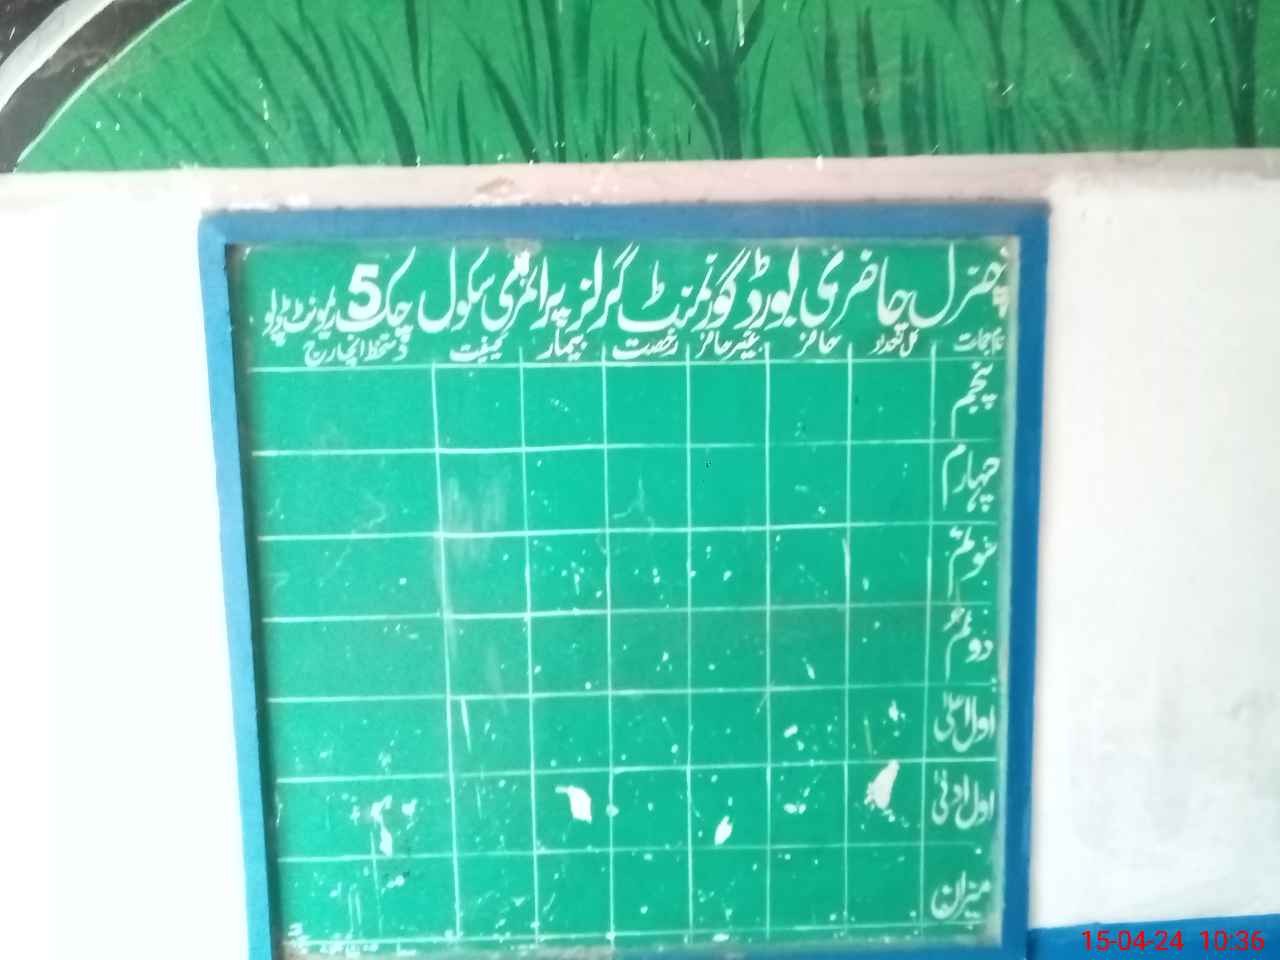 جنرل حاضری بورڈ گورنمنٹ گرلز پرائمری سکول چک 5
جماعت کل تعداد حاضر غیر حاضر رخصت بیمار کیفیت دستخط انچارج
پنجم
چہارم
سوئم
دوئم
اول اعلیٰ
اول ادنیٰ
میزان
15-04-24 10:36